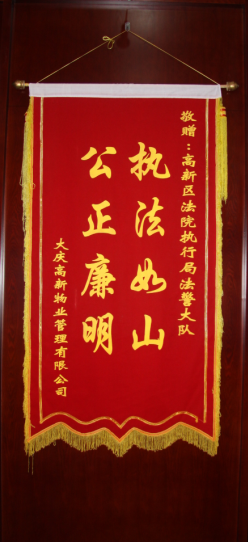 敬赠：高新区法院执行局法警大队
执法如山
公正廉明
大庆高新物业管理有限公司